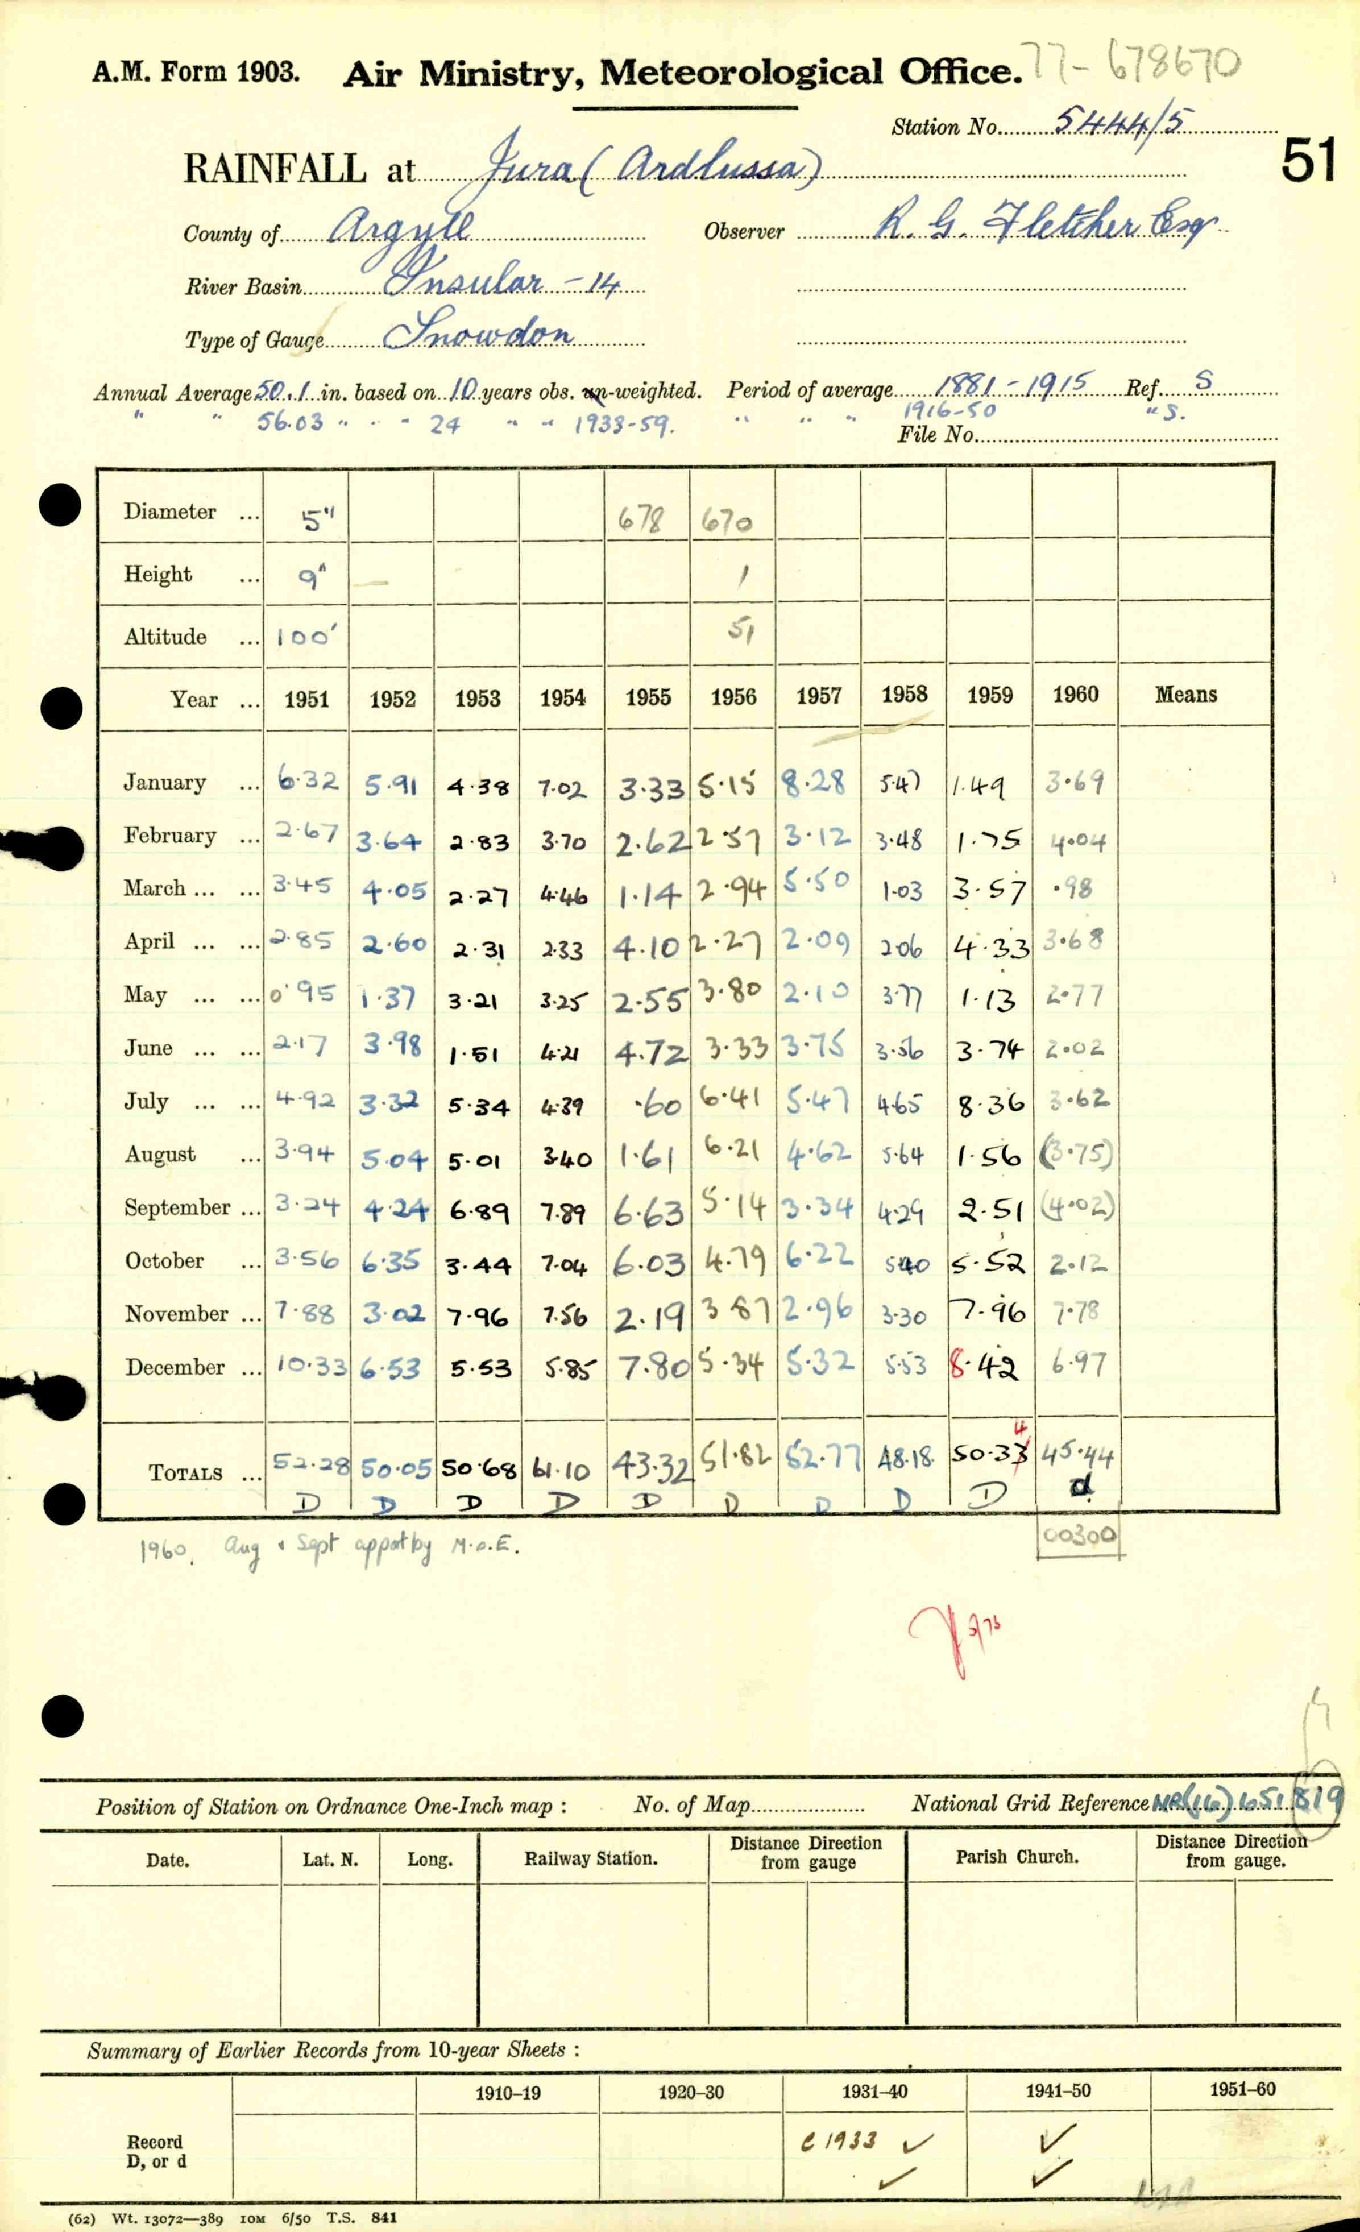 A.M. Form 1903. Air Ministry, Meteorological Office. 77- 678670
Station No. 5444/5
51
RAINFALL at Jura (Ardlussa)
County of Argyll Observer R. G. Fletcher Esq
River Basin Insular - 14
Type of Gauge Snowdon
Annual Average 50.1 in. based on 10 years obs. un-weighted. Period of average 1881-1915 Ref. S
" " 56.03 " " " 24 " " 1933-59. " " " 1916-50 " S.
File No.
Diameter ... 5" 678 670
Height ... 9" 1
Altitude ... 100' 51
Year ... 1951 1952 1953 1954 1955 1956 1957 1958 1959 1960 Means
January ... 6.32 5.91 4.38 7.02 3.33 5.15 8.28 5.47 1.49 3.69
February ... 2.67 3.64 2.83 3.70 2.62 2.57 3.12 3.48 1.75 4.04
March ... ... 3.45 4.05 2.27 4.46 1.14 2.94 5.50 1.03 3.57 .98
April ... ... 2.85 2.60 2.31 2.33 4.10 2.27 2.09 2.06 4.33 3.68
May ... ... 0.95 1.37 3.21 3.25 2.55 3.80 2.10 3.77 1.13 2.77
June ... ... 2.17 3.98 1.51 4.21 4.72 3.33 3.75 3.56 3.74 2.02
July ... ... 4.92 3.32 5.34 4.39 .60 6.41 5.47 4.65 8.36 3.62
August ... 3.94 5.04 5.01 3.40 1.61 6.21 4.62 5.64 1.56 (3.75)
September ... 3.24 4.24 6.89 7.89 6.63 5.14 3.34 4.29 2.51 (4.02)
October ... 3.56 6.35 3.44 7.04 6.03 4.79 6.22 5.40 5.52 2.12
November ... 7.88 3.02 7.96 7.56 2.19 3.87 2.96 3.30 7.96 7.78
December ... 10.33 6.53 5.53 5.85 7.80 5.34 5.32 5.53 8.42 6.97
4
TOTALS ... 52.28 50.05 50.68 61.10 43.32 51.82 52.77 48.18 50.33 45.44
D D D D D D D D D d
1960. Aug & Sept apport by M.O.E. 00300
5/73
Position of Station on Ordnance One-Inch map : No. of Map National Grid Reference NR(16) 651 819
Date. Lat. N. Long. Railway Station. Distance Direction from gauge Parish Church. Distance Direction from gauge.
Summary of Earlier Records from 10-year Sheets :
1910-19 1920-30 1931-40 1941-50 1951-60
Record c 1933 ✓ ✓
D, or d ✓ ✓
(62) Wt. 13072—389 10M 6/50 T.S. 841